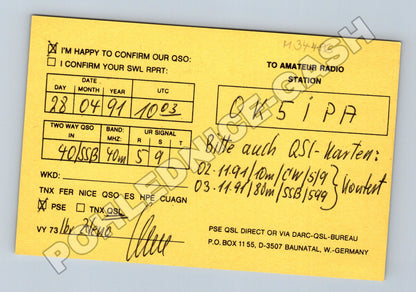 ☒ I'M HAPPY TO CONFIRM OUR QSO:
☐ I CONFIRM YOUR SWL RPRT:
DATE UTC
DAY MONTH YEAR
28 04 91 1003
TWO WAY QSO IN BAND: MHZ: UR SIGNAL
R S T
40/SSB 40m 5 9
WKD:
TNX FER NICE QSO ES HPE CUAGN
☒ PSE ☐ TNX QSL
VY 73
TO AMATEUR RADIO
STATION
OK5IPA
Bitte auch QSL-Karten:
02.11.91/10m/CW/5/9
03.11.91/80m/SSB/599 } Kontest
PSE QSL DIRECT OR VIA DARC-QSL-BUREAU
P.O. BOX 11 55, D-3507 BAUNATAL, W.-GERMANY
POHLEDNICE-GZ-SH